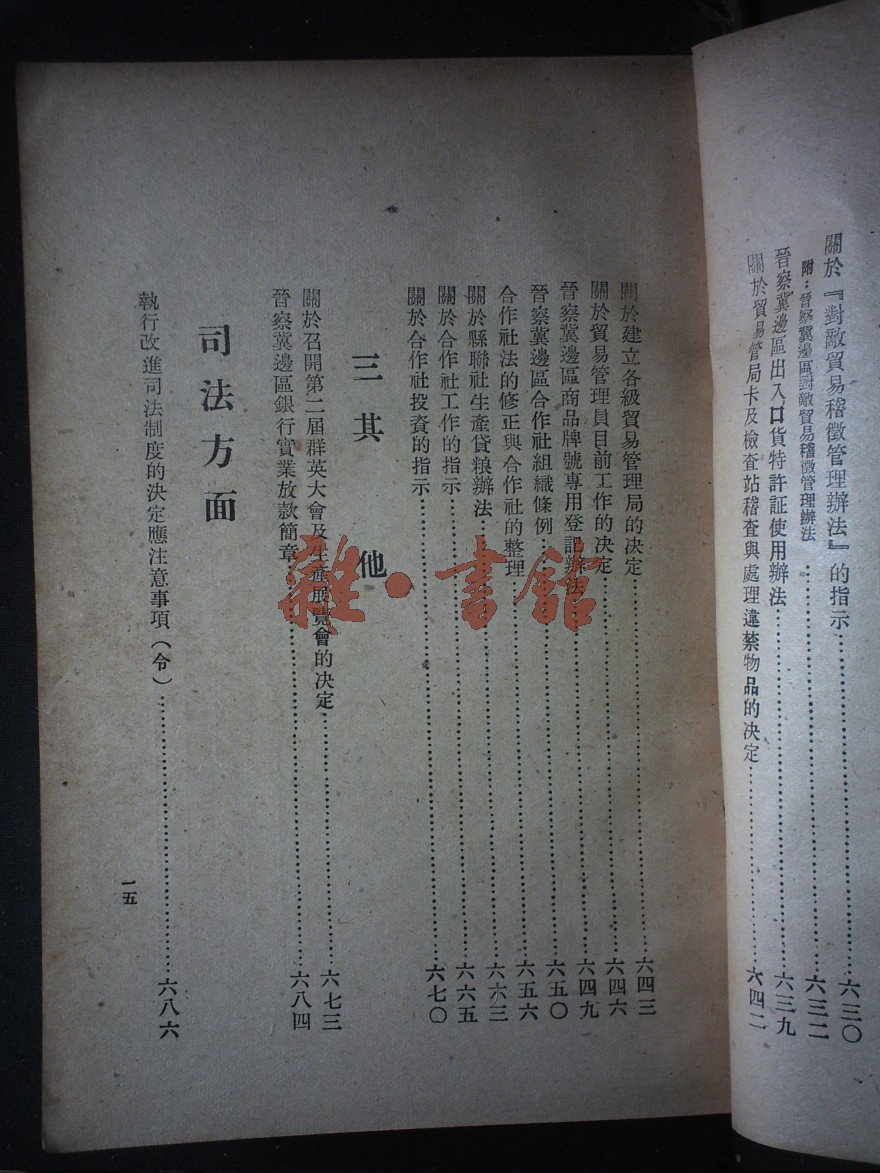 關於『對敵貿易稽徵管理辦法』的指示……六三〇
附：晉察冀邊區對敵貿易稽徵管理辦法……六三二
晉察冀邊區出入口貨特許証使用辦法……六三九
關於貿易管局卡及檢查站稽查與處理違禁物品的決定……六四二
關於建立各級貿易管理局的決定……六四三
關於貿易管理員目前工作的決定……六四六
晉察冀邊區商品牌號專用登記辦法……六四九
晉察冀邊區合作社組織條例……六五〇
合作社法的修正與合作社的整理……六五六
關於縣聯社生產貸粮辦法……六六三
關於合作社工作的指示……六六五
關於合作社投資的指示……六七〇
三 其 他
關於召開第二屆群英大會及生產展覽會的決定……六七三
晉察冀邊區銀行實業放款簡章……六八四
司法方面
執行改進司法制度的決定應注意事項（令）……六八六
一五
雜·書館